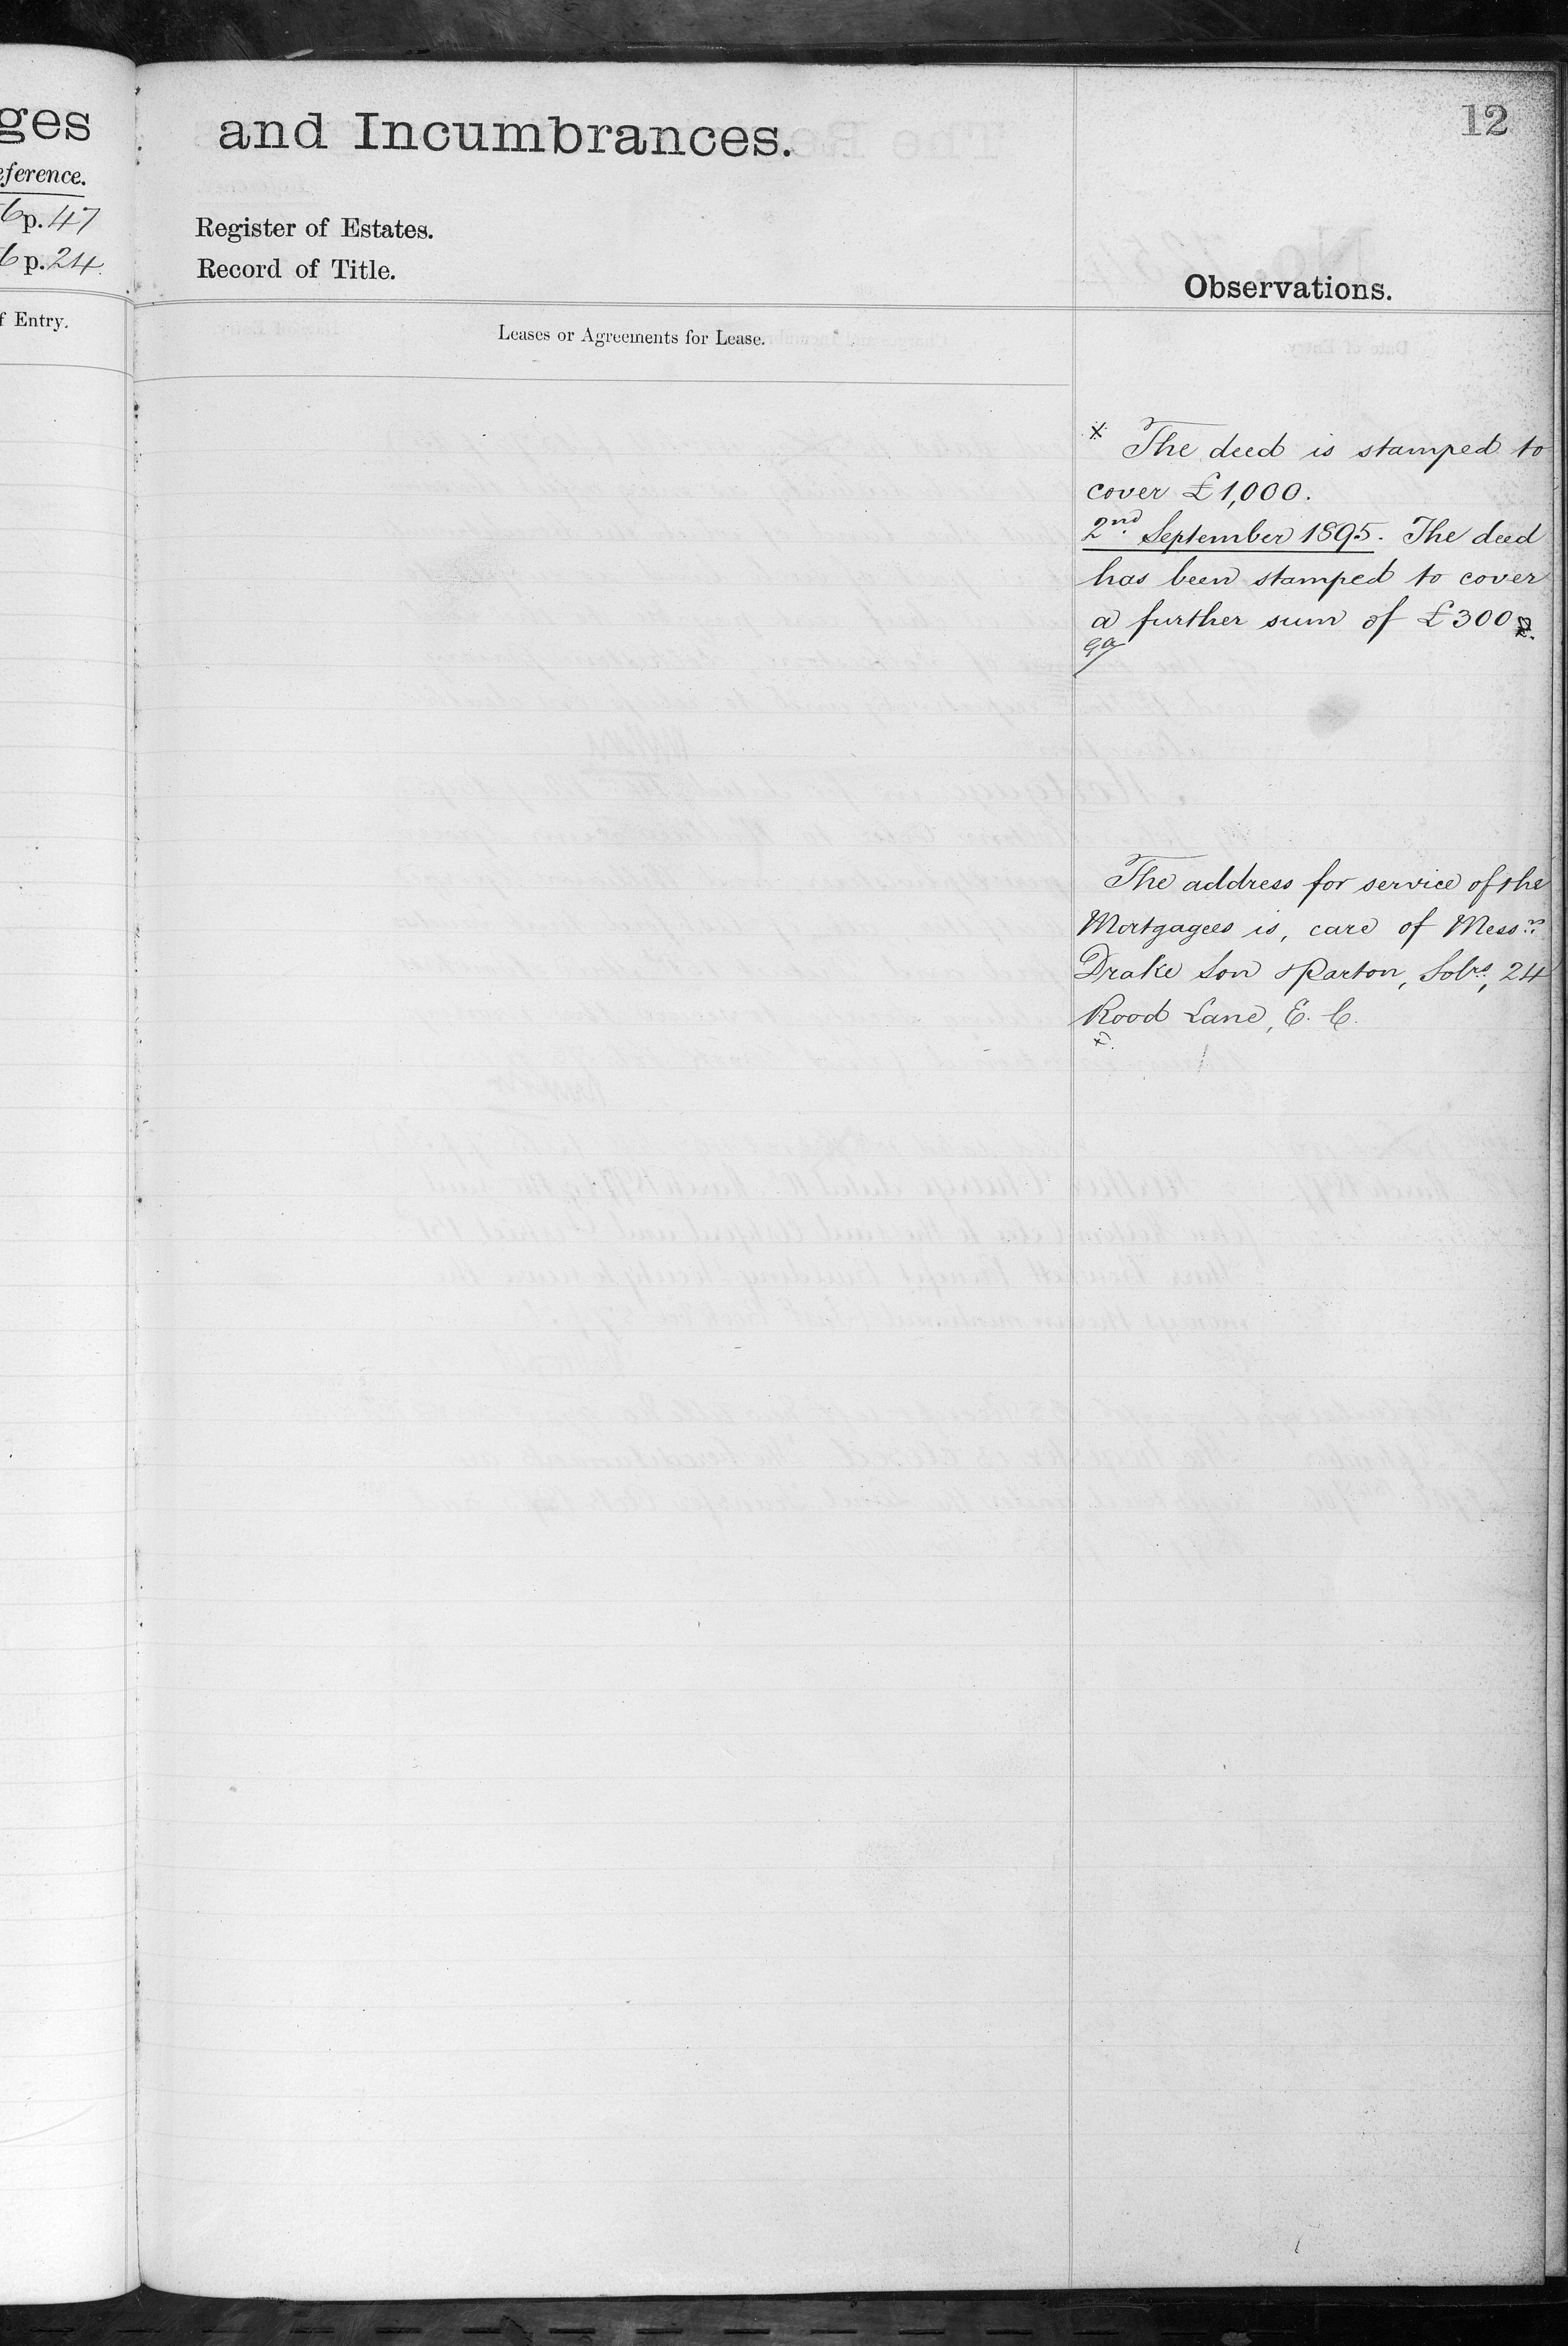 ges
eference.
6 p. 47
6 p. 24.
f Entry.
and Incumbrances.
12
Register of Estates.
Record of Title.
Observations.
Leases or Agreements for Lease.
x The deed is stamped to
cover £1,000.
2nd September 1895. The deed
has been stamped to cover
a further sum of £300
The address for service of the
Mortgagees is, care of Messrs
Drake Son & Parton, Solrs, 24
Rood Lane, E. C.
x